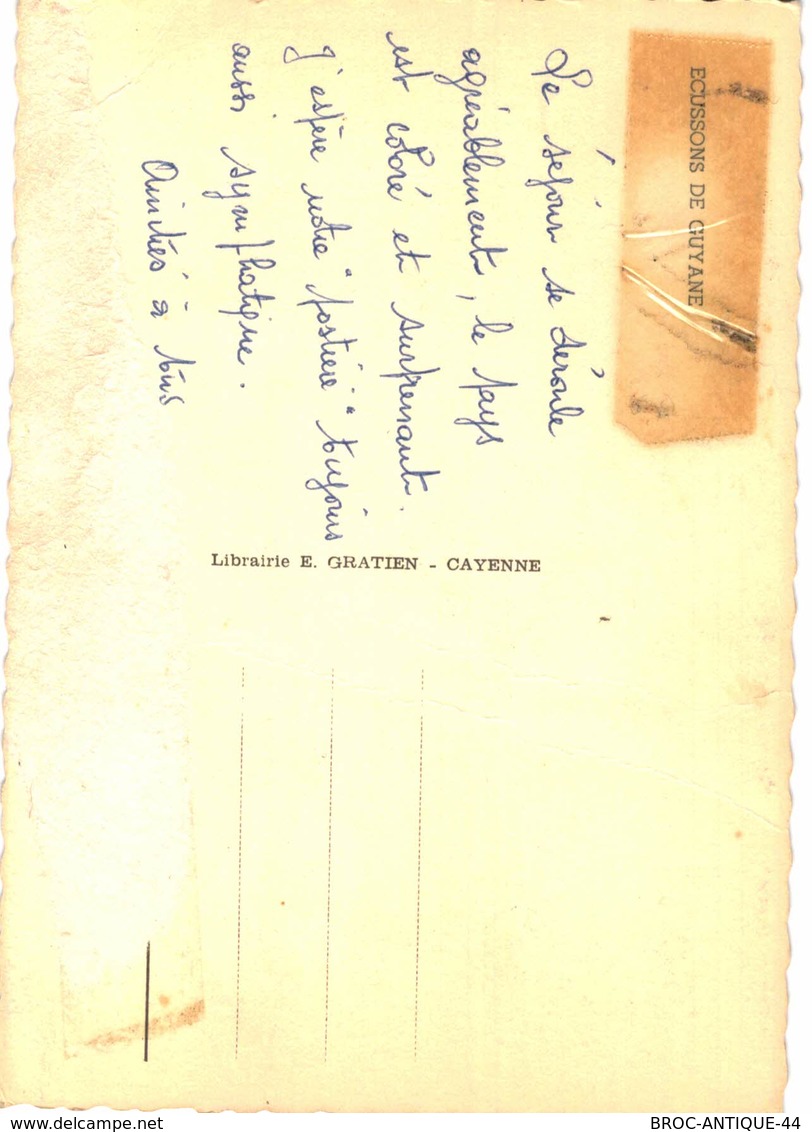 ECUSSONS DE GUYANE
Le séjour se déroule
agréablement, le pays
est coloré et surprenant.
J'espère votre "postière" toujours
aussi symphatique.
Amitiés à tous
Librairie E. GRATIEN - CAYENNE
BROC-ANTIQUE-44